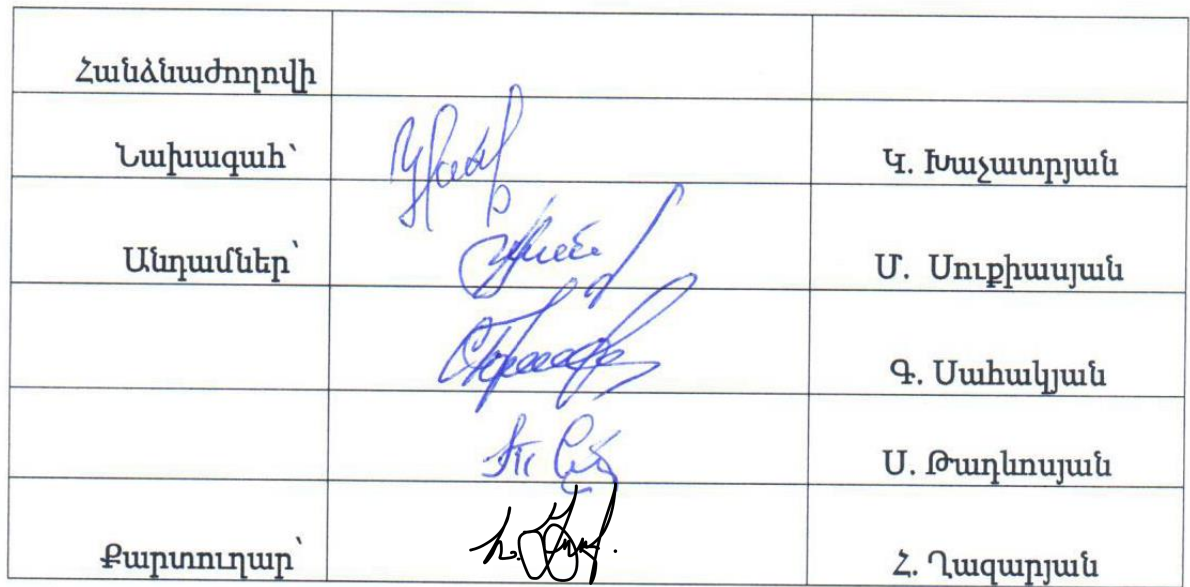 Հանձնաժողովի
Նախագահ՝ Կ. Խաչատրյան
Անդամներ՝ Մ. Սուքիասյան
Գ. Սահակյան
Ս. Թադևոսյան
Քարտուղար՝ Հ. Ղազարյան